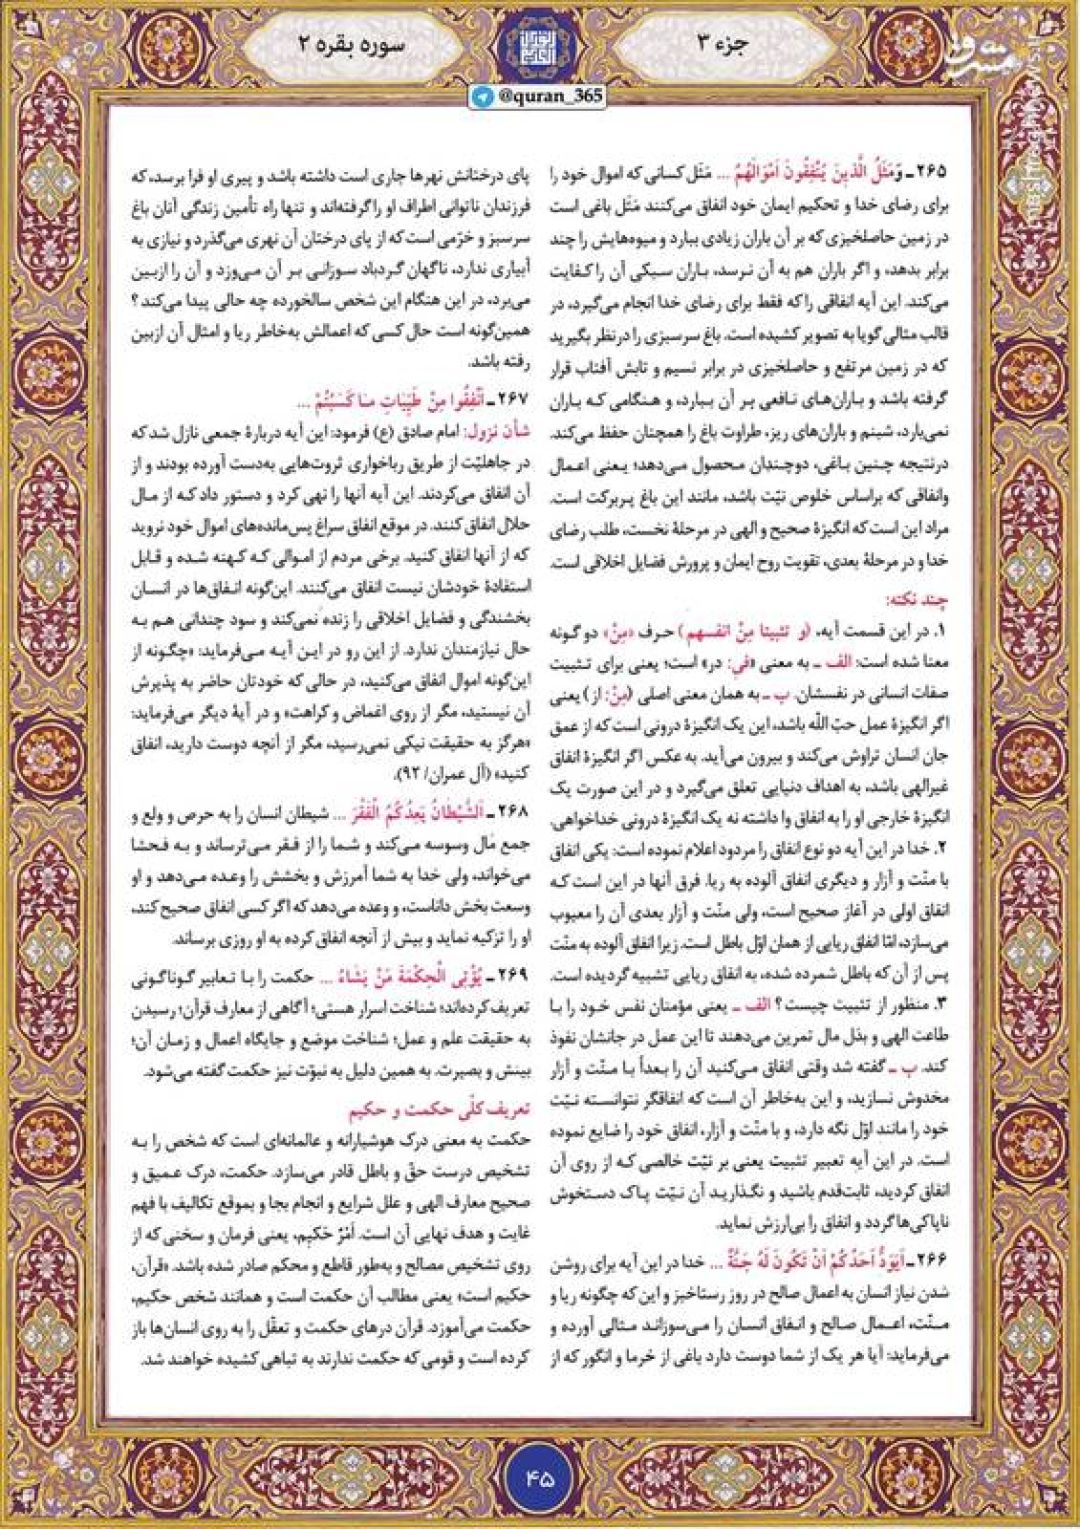 جزء ۳
سوره بقره ۲
مشرق
mashreghnews.ir
@quran_365
۲۶۵ـ وَمَثَلُ الَّذینَ یُنْفِقُونَ اَمْوَالَهُمْ ... مَثَل کسانی که اموال خود را
برای رضای خدا و تحکیم ایمان خود انفاق می‌کنند مَثَل باغی است
در زمین حاصلخیزی که بر آن باران زیادی ببارد و میوه‌هایش را چند
برابر بدهد، و اگر باران هم به آن نرسد، باران سبکی آن را کفایت
می‌کند. این آیه انفاقی را که فقط برای رضای خدا انجام می‌گیرد، در
قالب مثالی گویا به تصویر کشیده است. باغ سرسبزی را درنظر بگیرید
که در زمین مرتفع و حاصلخیزی در برابر نسیم و تابش آفتاب قرار
گرفته باشد و باران‌های نافعی بر آن ببارد، و هنگامی که باران
نمی‌بارد، شبنم و باران‌های ریز، طراوت باغ را همچنان حفظ می‌کند.
درنتیجه چنین باغی، دوچندان محصول می‌دهد؛ یعنی اعمال
وانفاقی که براساس خلوص نیّت باشد، مانند این باغ پربرکت است.
مراد این است که انگیزهٔ صحیح و الهی در مرحلهٔ نخست، طلب رضای
خدا و در مرحلهٔ بعدی، تقویت روح ایمان و پرورش فضایل اخلاقی است.
چند نکته:
۱. در این قسمت آیه، (و تثبیتا مِنْ انفسهم) حرف «مِنْ» دو گونه
معنا شده است: الف ـ به معنی «فی: در» است؛ یعنی برای تثبیت
صفات انسانی در نفسشان. ب ـ به همان معنی اصلی (مِنْ: از) یعنی
اگر انگیزهٔ عمل حبّ الله باشد، این یک انگیزهٔ درونی است که از عمق
جان انسان تراوش می‌کند و بیرون می‌آید. به عکس اگر انگیزهٔ انفاق
غیرالهی باشد، به اهداف دنیایی تعلق می‌گیرد و در این صورت یک
انگیزهٔ خارجی او را به انفاق وا داشته نه یک انگیزهٔ درونی خداخواهی.
۲. خدا در این آیه دو نوع انفاق را مردود اعلام نموده است: یکی انفاق
با منّت و آزار و دیگری انفاق آلوده به ریا. فرق آنها در این است که
انفاق اولی در آغاز صحیح است، ولی منّت و آزار بعدی آن را معیوب
می‌سازد، امّا انفاق ریایی از همان اوّل باطل است. زیرا انفاق آلوده به منّت
پس از آن که باطل شمرده شده، به انفاق ریایی تشبیه گردیده است.
۳. منظور از تثبیت چیست؟ الف ـ یعنی مؤمنان نفس خود را با
طاعت الهی و بذل مال تمرین می‌دهند تا این عمل در جانشان نفوذ
کند. ب ـ گفته شد وقتی انفاق می‌کنید آن را بعداً با منّت و آزار
مخدوش نسازید، و این به‌خاطر آن است که انفاقگر نتوانسته نیّت
خود را مانند اوّل نگه دارد، و با منّت و آزار، انفاق خود را ضایع نموده
است. در این آیه تعبیر تثبیت یعنی بر نیّت خالصی که از روی آن
انفاق کردید، ثابت‌قدم باشید و نگذارید آن نیّت پاک دستخوش
ناپاکی‌ها گردد و انفاق را بی‌ارزش نماید.
۲۶۶ ـ اَیَوَدُّ اَحَدُکُمْ اَنْ تَکُونَ لَهُ جَنَّةٌ ... خدا در این آیه برای روشن
شدن نیاز انسان به اعمال صالح در روز رستاخیز و این که چگونه ریا و
منّت، اعمال صالح و انفاق انسان را می‌سوزاند مثالی آورده و
می‌فرماید: آیا هر یک از شما دوست دارد باغی از خرما و انگور که از
پای درختانش نهرها جاری است داشته باشد و پیری او فرا برسد، که
فرزندان ناتوانی اطراف او را گرفته‌اند و تنها راه تأمین زندگی آنان باغ
سرسبز و خرّمی است که از پای درختان آن نهری می‌گذرد و نیازی به
آبیاری ندارد، ناگهان گردباد سوزانی بر آن می‌وزد و آن را ازبین
می‌برد، در این هنگام این شخص سالخورده چه حالی پیدا می‌کند؟
همین‌گونه است حال کسی که اعمالش به‌خاطر ریا و امثال آن ازبین
رفته باشد.
۲۶۷ ـ اَنْفِقُوا مِنْ طَیِّبَاتِ مَا کَسَبْتُمْ ...
شأن نزول: امام صادق (ع) فرمود: این آیه دربارهٔ جمعی نازل شد که
در جاهلیّت از طریق رباخواری ثروت‌هایی به‌دست آورده بودند و از
آن انفاق می‌کردند. این آیه آنها را نهی کرد و دستور داد که از مال
حلال انفاق کنند. در موقع انفاق سراغ پس‌مانده‌های اموال خود نروید
که از آنها انفاق کنید. برخی مردم از اموالی که کهنه شده و قابل
استفادهٔ خودشان نیست انفاق می‌کنند. این‌گونه انفاق‌ها در انسان
بخشندگی و فضایل اخلاقی را زنده نمی‌کند و سود چندانی هم به
حال نیازمندان ندارد. از این رو در این آیه می‌فرماید: «چگونه از
این‌گونه اموال انفاق می‌کنید، در حالی که خودتان حاضر به پذیرش
آن نیستید، مگر از روی اغماض و کراهت» و در آیهٔ دیگر می‌فرماید:
«هرگز به حقیقت نیکی نمی‌رسید، مگر از آنچه دوست دارید، انفاق
کنید» (آل عمران/ ۹۲).
۲۶۸ ـ اَلشَّیْطَانُ یَعِدُکُمُ الْفَقْرَ ... شیطان انسان را به حرص و ولع و
جمع مال وسوسه می‌کند و شما را از فقر می‌ترساند و به فحشا
می‌خواند، ولی خدا به شما آمرزش و بخشش را وعده می‌دهد و او
وسعت بخش داناست، و وعده می‌دهد که اگر کسی انفاق صحیح کند،
او را تزکیه نماید و بیش از آنچه انفاق کرده به او روزی برساند.
۲۶۹ ـ یُؤْتِی الْحِکْمَةَ مَنْ یَشَاءُ ... حکمت را با تعابیر گوناگونی
تعریف کرده‌اند؛ شناخت اسرار هستی؛ آگاهی از معارف قرآن؛ رسیدن
به حقیقت علم و عمل؛ شناخت موضع و جایگاه اعمال و زمان آن؛
بینش و بصیرت. به همین دلیل به نبوّت نیز حکمت گفته می‌شود.
تعریف کلّی حکمت و حکیم
حکمت به معنی درک هوشیارانه و عالمانه‌ای است که شخص را به
تشخیص درست حقّ و باطل قادر می‌سازد. حکمت، درک عمیق و
صحیح معارف الهی و علل شرایع و انجام بجا و بموقع تکالیف با فهم
غایت و هدف نهایی آن است. اَمْرٌ حَکیِم، یعنی فرمان و سخنی که از
روی تشخیص مصالح و به‌طور قاطع و محکم صادر شده باشد. «قرآن،
حکیم است» یعنی مطالب آن حکمت است و همانند شخص حکیم،
حکمت می‌آموزد. قرآن درهای حکمت و تعقّل را به روی انسان‌ها باز
کرده است و قومی که حکمت ندارند به تباهی کشیده خواهند شد.
۴۵